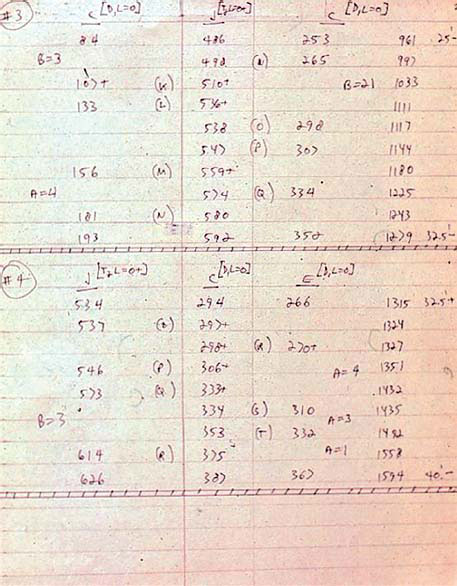 #3 C [D,L=0] J [T,L=0+] C [D,L=0]
84 486 253 961 25'-
B=3 498 (N) 265 997
107+ (K) 510+ B=21 1033
133 (L) 536+ 1111
538 (O) 298 1117
547 (P) 307 1144
156 (M) 559+ 1180
A=4 574 (Q) 334 1225
181 (N) 580 1243
193 592 352 1279 32.5'-
#4 J [T, L=0+] C [D,L=0] E [D,L=0]
534 294 266 1315 32.5'+
537 (O) 297+ 1324
298+ (R) 270+ 1327
546 (P) 306+ A=4 1351
573 (Q) 333+ 1432
334 (S) 310 1435
B=3 353 (T) 332 A=3 1492
614 (R) 375 A=1 1558
626 387 367 1594 40'-